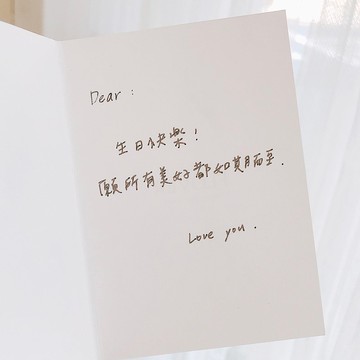 Dear :
生日快樂!
願所有美好都如期而至.
Love you .